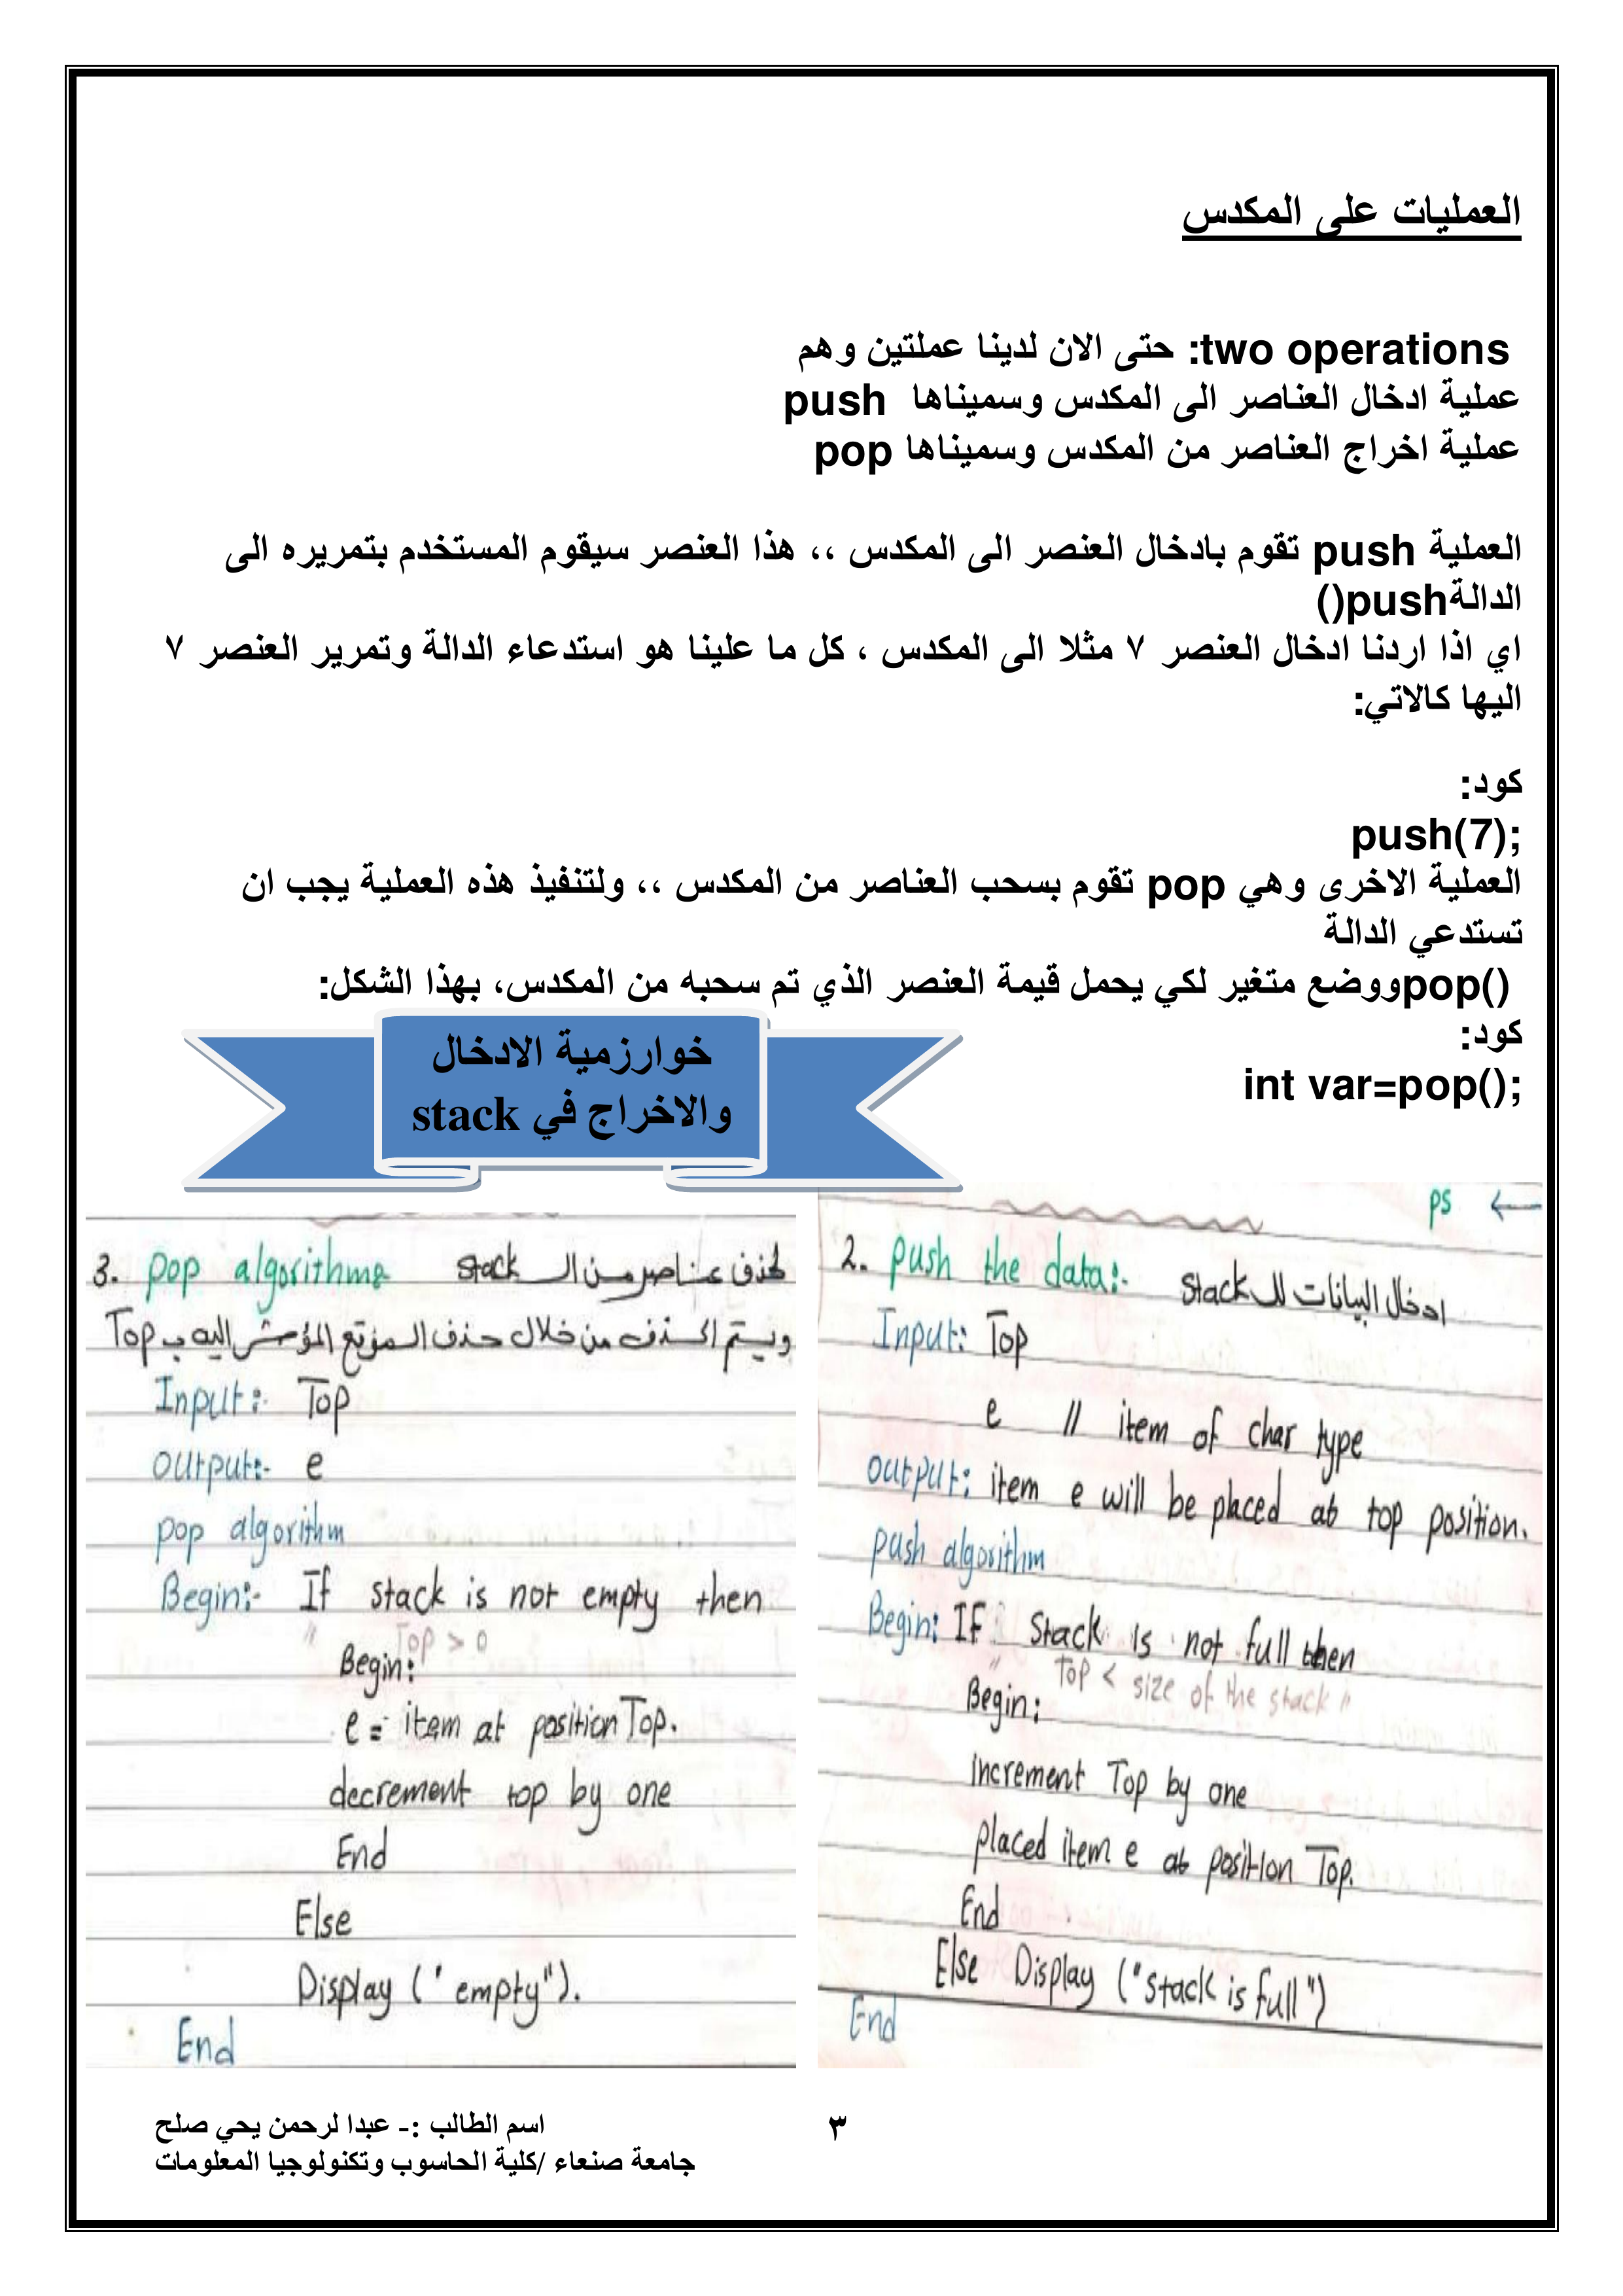 العمليات على المكدس
two operations: حتى الان لدينا عملتين وهم
عملية ادخال العناصر الى المكدس وسميناها push
عملية اخراج العناصر من المكدس وسميناها pop
العملية push تقوم بادخال العنصر الى المكدس ،، هذا العنصر سيقوم المستخدم بتمريره الى
الدالةpush()
اي اذا اردنا ادخال العنصر ٧ مثلا الى المكدس ، كل ما علينا هو استدعاء الدالة وتمرير العنصر ٧
اليها كالاتي:
كود:
push(7);
العملية الاخرى وهي pop تقوم بسحب العناصر من المكدس ،، ولتنفيذ هذه العملية يجب ان
تستدعي الدالة
pop()ووضع متغير لكي يحمل قيمة العنصر الذي تم سحبه من المكدس، بهذا الشكل:
كود:
int var=pop();
خوارزمية الادخال
والاخراج في stack
ps ←
2. push the data:- ادخال البيانات للـ Stack
Input: Top
e // item of char type
output: item e will be placed at top position.
push algorithm
Begin: IF Stack is not full then
" Top < size of the stack "
Begin:
increment Top by one
placed item e at position Top.
End
Else Display ("stack is full")
End
3. pop algorithms لحذف عناصر من الـ stack
ويتم الحذف من خلال حذف الموقع المؤشر اليه بـ Top
Input:- Top
output:- e
pop algorithm
Begin:- If stack is not empty then
" Top > 0
Begin:
e = item at position Top.
decrement top by one
End
Else
Display (" empty").
End
٣
اسم الطالب :- عبدا لرحمن يحي صلح
جامعة صنعاء /كلية الحاسوب وتكنولوجيا المعلومات